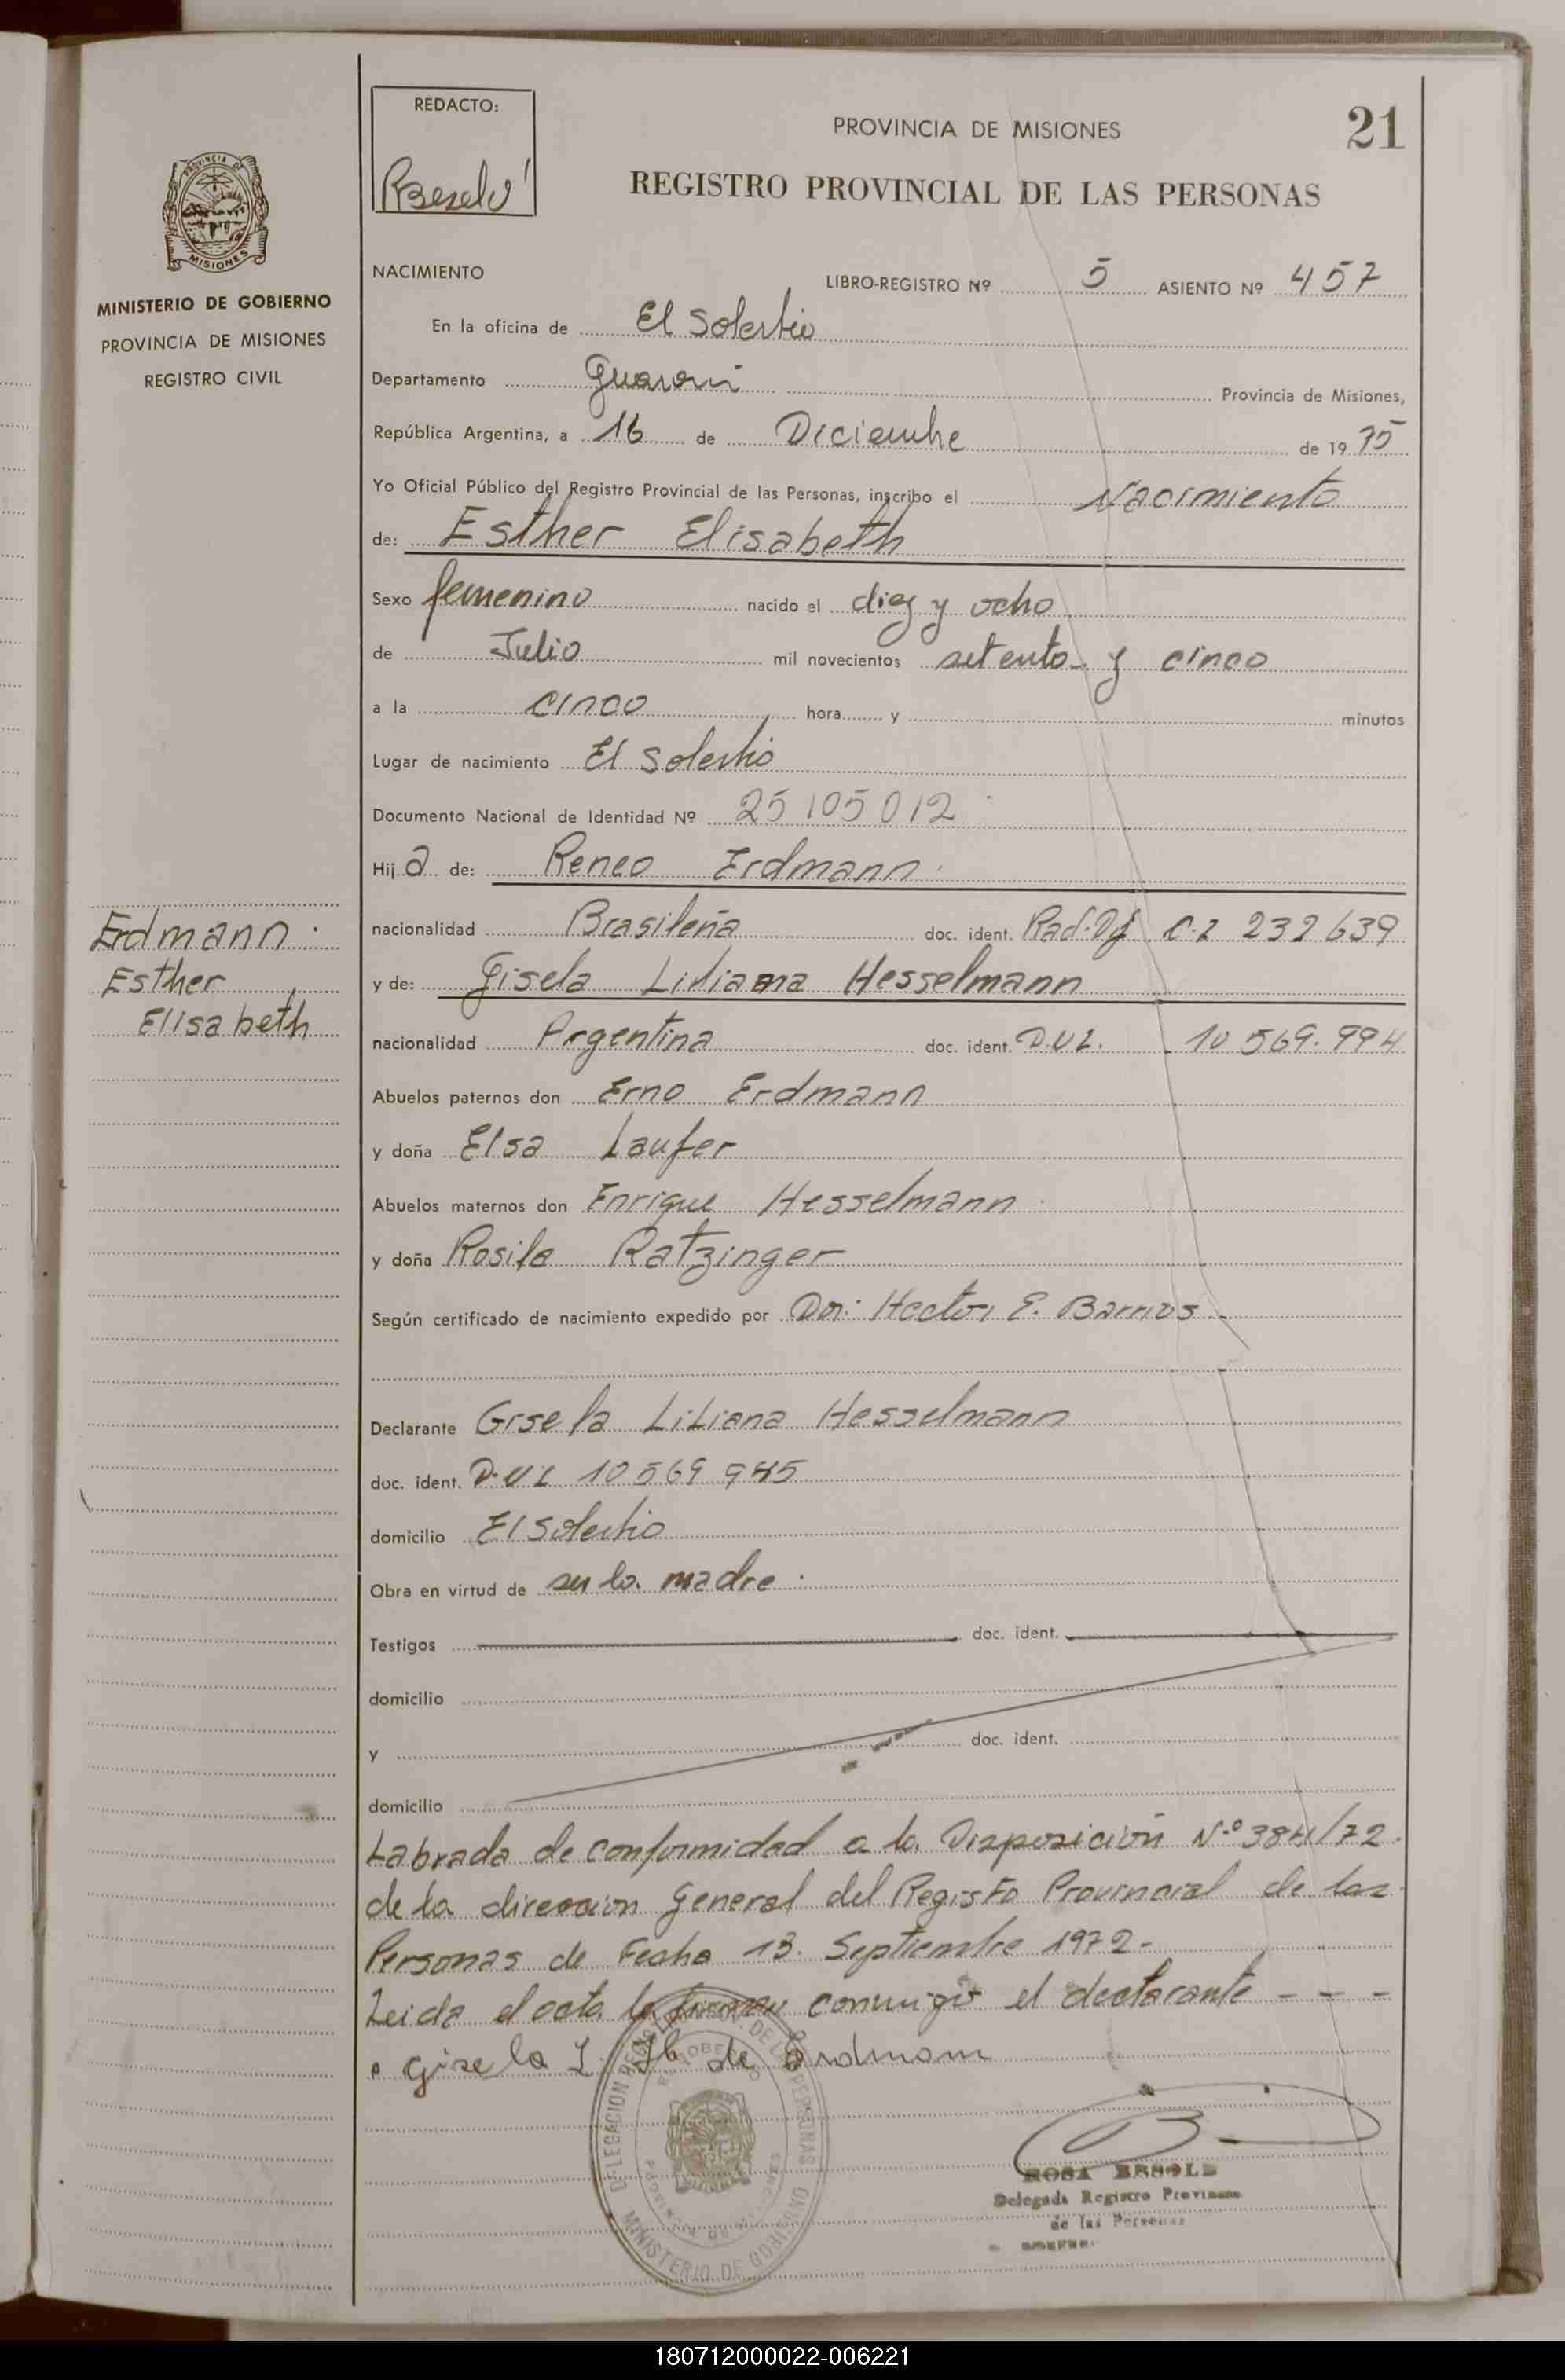 REDACTO:
PROVINCIA DE MISIONES
21
REGISTRO PROVINCIAL DE LAS PERSONAS
PROVINCIA DE
MISIONES
MINISTERIO DE GOBIERNO
PROVINCIA DE MISIONES
REGISTRO CIVIL
NACIMIENTO
LIBRO-REGISTRO Nº 5 ASIENTO Nº 457
En la oficina de El Soberbio
Departamento Guarani Provincia de Misiones,
República Argentina, a 16 de Diciembre de 1975
Yo Oficial Público del Registro Provincial de las Personas, inscribo el Nacimiento
de: Esther Elisabeth
Sexo femenino nacido el diez y ocho
de Julio mil novecientos setenta y cinco
a la cinco hora y minutos
Lugar de nacimiento El Soberbio
Documento Nacional de Identidad Nº 25105012
Hija de: Reneo Erdmann
Erdmann
Esther
Elisabeth
nacionalidad Brasileña doc. ident. C.I 232639
y de: Gisela Liliana Hesselmann
nacionalidad Argentina doc. ident. 10 569.994
Abuelos paternos don Erno Erdmann
y doña Elsa Laufer
Abuelos maternos don Enrique Hesselmann
y doña Rosila Ratzinger
Según certificado de nacimiento expedido por Dr: Hector E. Barrios
Declarante Gisela Liliana Hesselmann
doc. ident. 10 569 945
domicilio El Soberbio
Obra en virtud de ser la madre.
Testigos doc. ident.
domicilio
y doc. ident.
domicilio
Labrada de conformidad a la Disposición Nº 384/72.
de la direccion General del Registro Provincial de las
Personas de Fecha 13. Septiembre 1972-
Leida el acta la firman conmigo el declarante - - -
Gisela L. H. de Erdmann
DELEGACION REGISTRO PROV. DE LAS PERSONAS
MINISTERIO DE GOBIERNO
Delegada Registro Provincial
de las Personas
180712000022-006221